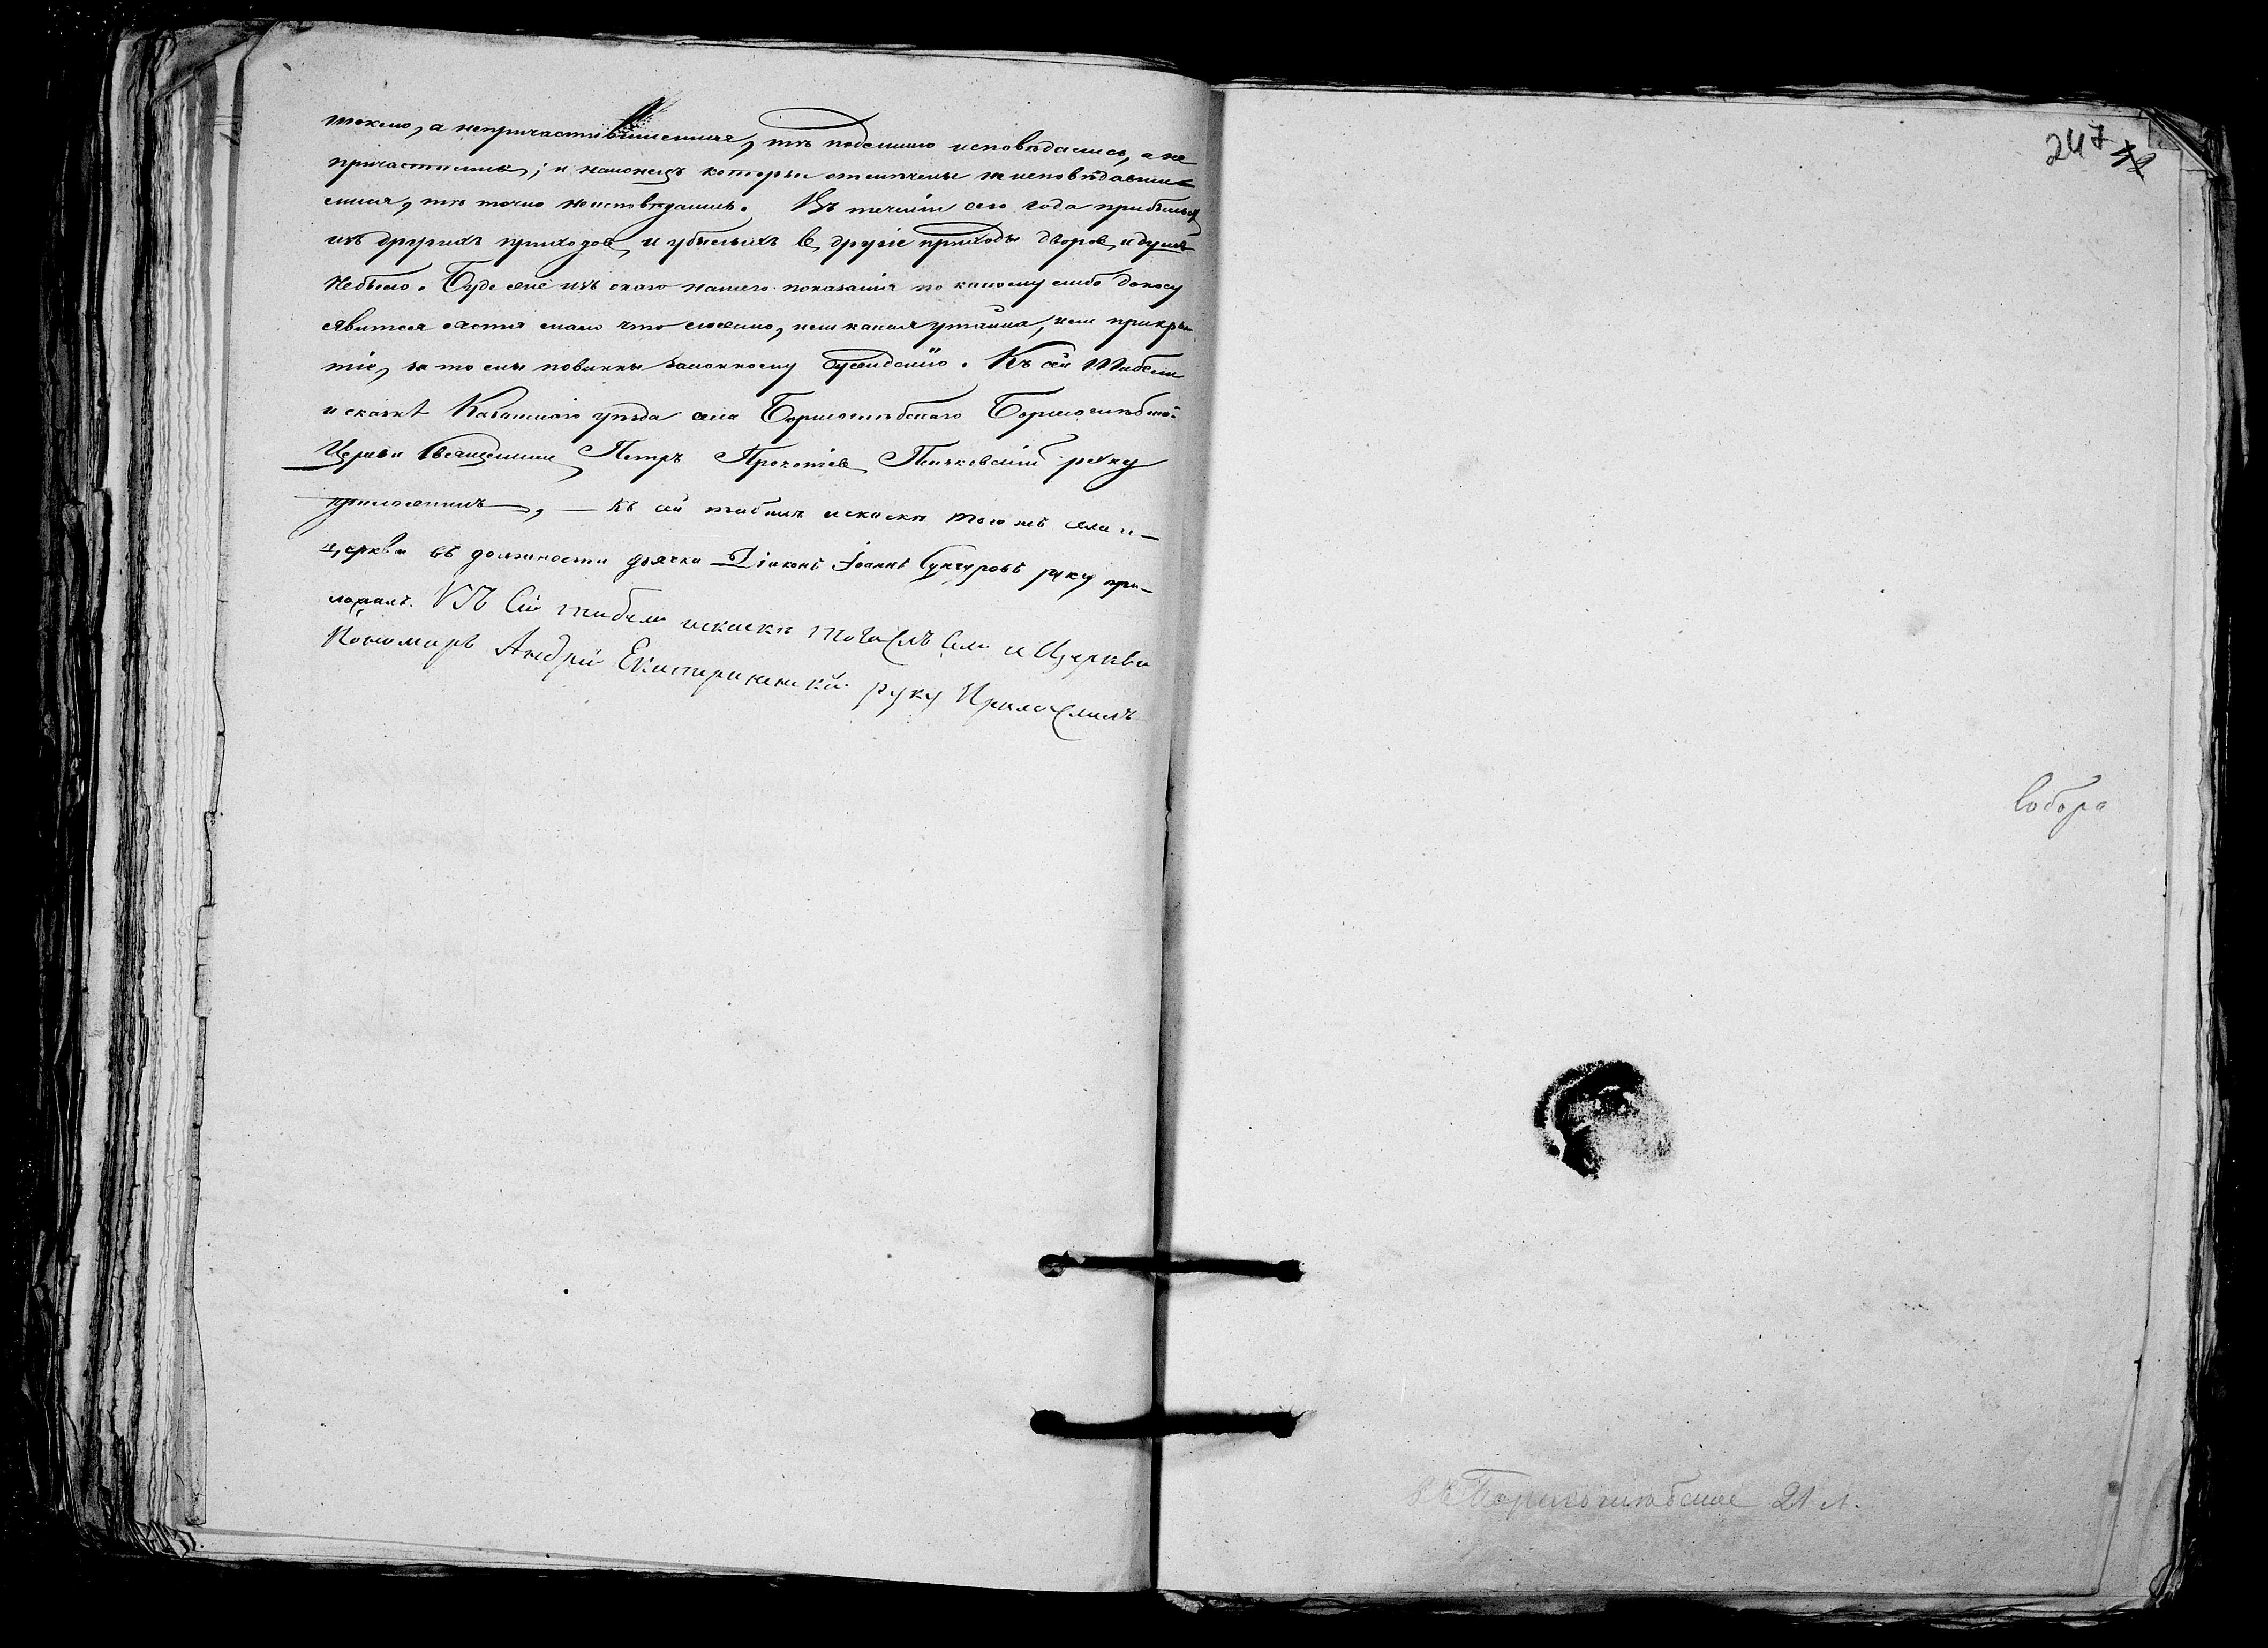 токмо, а непричастившимися, тѣ подлинно исповѣдались, а не
причастились; и наконецъ которые отмѣчены неисповѣдавши-
мися, тѣ точно неисповѣдались. Въ теченіи сего года прибылыхъ
изъ другихъ приходов и убылыхъ в другіе приходы дворов и душъ
небыло. Буде же изъ сего нашего показанія по какому либо доносу
явится хотя мало что ложно, или какая утайка, или прикры-
тіе, за то мы повинны законному осужденію. Къ сей Табели
и сказкѣ уѣзда села Борисоглѣбскаго Борисоглѣбской
Церкви Священник Петръ Прокопіев руку
приложилъ, — Къ сей табели искаскѣ тогожъ села и
церкви въ должности дьячка Діаконъ Іоаннъ Сунгуровъ руку при-
ложилъ. Къ Сей табели искаскѣ тогожъ Села и Церкви
Пономарь Андрей Екатерининскій руку Приложилъ
247 42
собора
Борисоглѣбское 21 л.